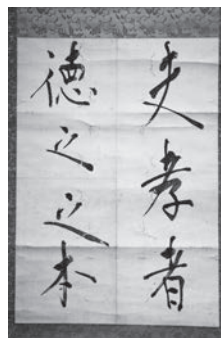 夫孝者
徳之之本